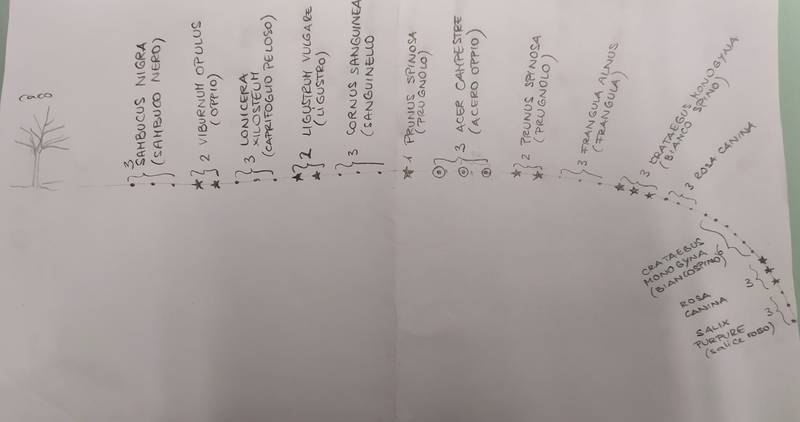 CACO
3
SAMBUCUS NIGRA
(SAMBUCO NERO)
2 VIBURNUM OPULUS
(OPPIO)
3 LONICERA
XILOSTEUM
(CAPRIFOGLIO PELOSO)
2 LIGUSTRUM VULGARE
(LIGUSTRO)
3 CORNUS SANGUINEA
(SANGUINELLO)
1 PRUNUS SPINOSA
(PRUGNOLO)
3 ACER CAMPESTRE
(ACERO OPPIO)
2 PRUNUS SPINOSA
(PRUGNOLO)
3 FRANGULA ALANUS
(FRANGULA)
3 CRATAEGUS MONOGYNA
(BIANCO SPINO)
3 ROSA CANINA
CRATAEBUS
MONOGYNA
(BIANCOSPINO) 6
ROSA
CANINA 3
SALIX
PURPURE 3
(salice rosso)